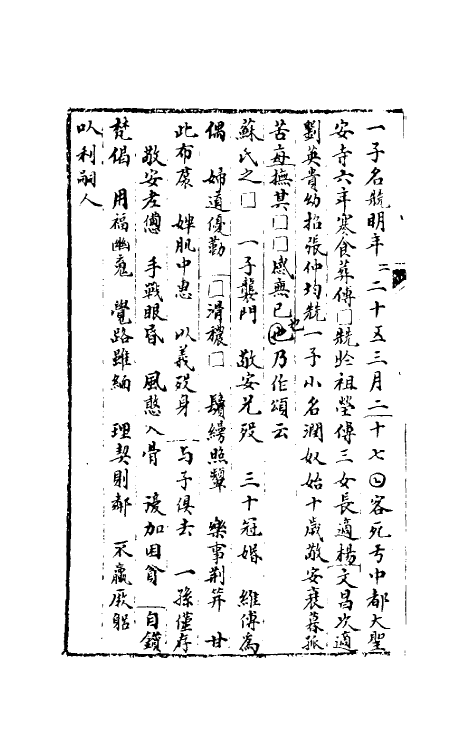 一子名競明年二十五三月二十七日客死于中都大聖
安寺六年寒食葬傅□競於祖塋傅三女長適楊文昌次適
劉英貴幼招張仲均競一子小名潤奴始十歲敬安衰暮孤
苦每撫其□□感無已也乃作頌云
蘇氏之□ 一子襲門 敬安兄歿 三十冠婚 維傅爲
偶 婦道優勤 □滑穠□ 鬚綅照鞶 樂事荆筓 甘
此布裠 婢肌中患 以義歿身 与子俱去 一孫僅存
敬安老憊 手戰眼昏 風憨入骨 謾加困貧 自鑚
梵偈 用福幽竁 覺路雖緬 理契則鄰 不羸厥躬
以利嗣人